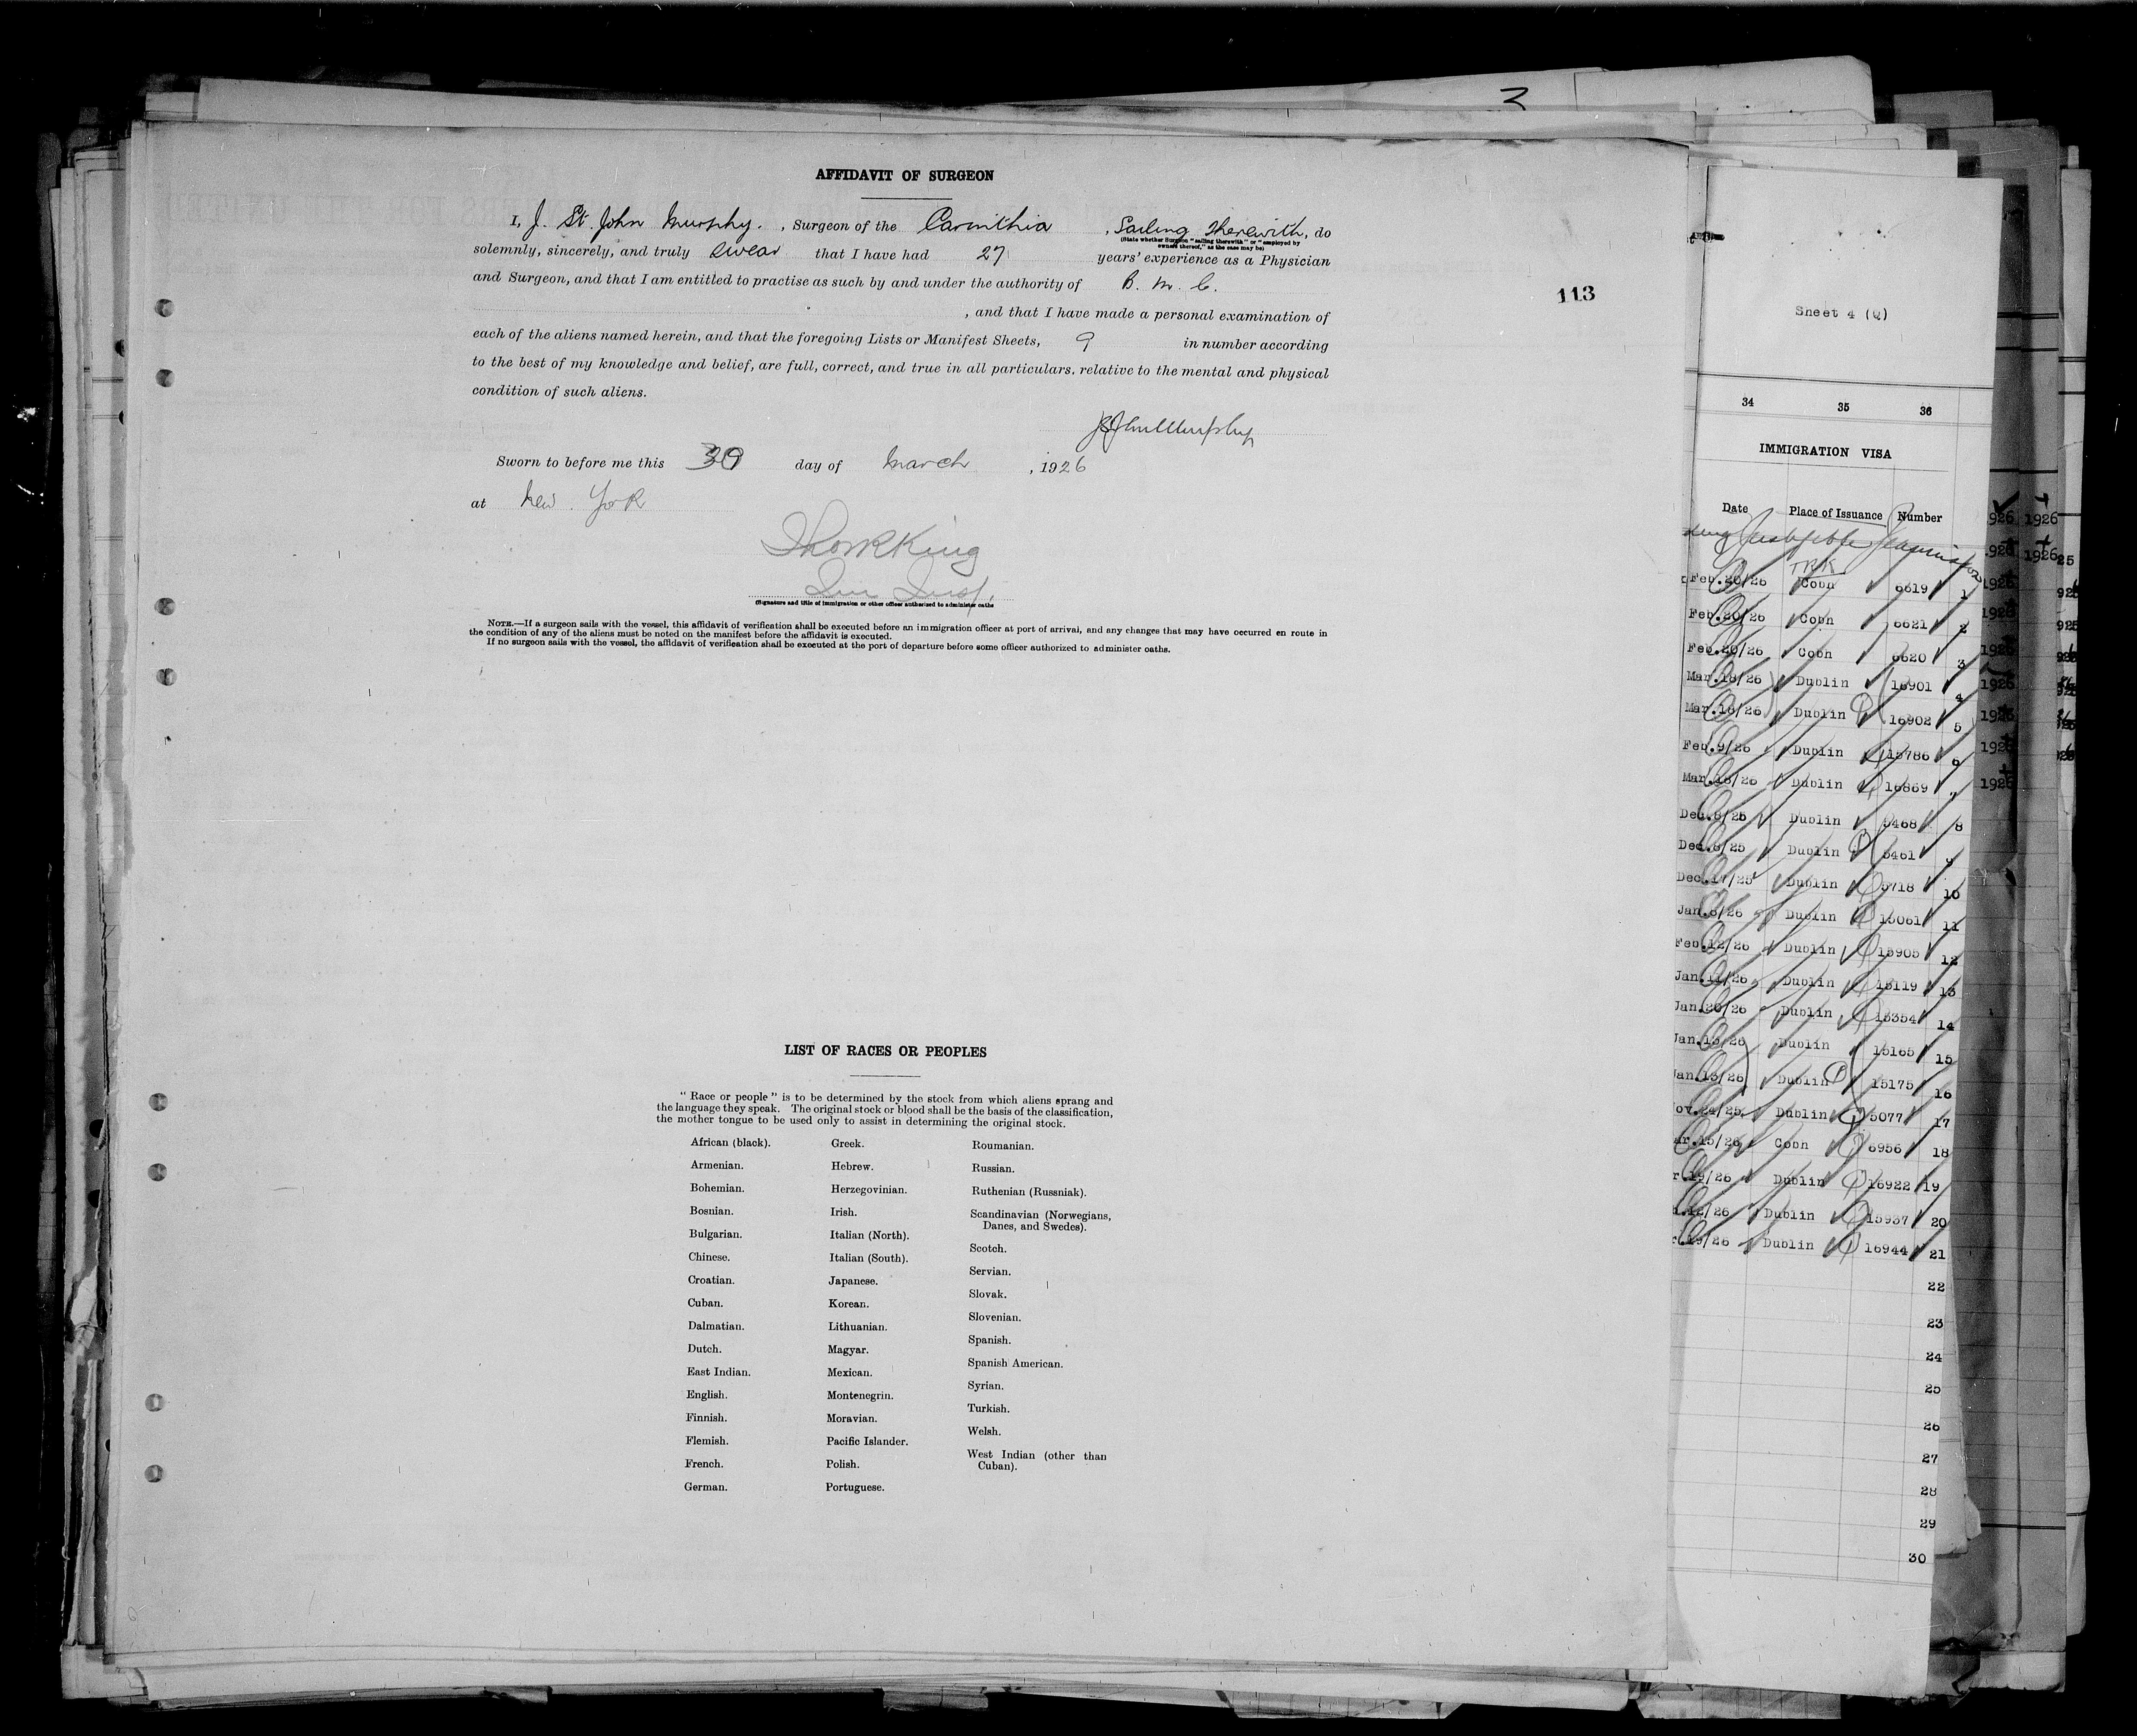 AFFIDAVIT OF SURGEON
I, J. St. John Murphy. , Surgeon of the Carinthia , Sailing therewith, do
(State whether Surgeon "sailing therewith" or "employed by
owners thereof," as the case may be)
solemnly, sincerely, and truly swear that I have had 27 years' experience as a Physician
and Surgeon, and that I am entitled to practise as such by and under the authority of B. M. C.
, and that I have made a personal examination of
each of the aliens named herein, and that the foregoing Lists or Manifest Sheets, 9 in number according
to the best of my knowledge and belief, are full, correct, and true in all particulars, relative to the mental and physical
condition of such aliens.
J StJohn Murphy
Sworn to before me this 30 day of March , 1926
at New York
(Signature and title of immigration or other officer authorized to administer oaths
NOTE.—If a surgeon sails with the vessel, this affidavit of verification shall be executed before an immigration officer at port of arrival, and any changes that may have occurred en route in
the condition of any of the aliens must be noted on the manifest before the affidavit is executed.
If no surgeon sails with the vessel, the affidavit of verification shall be executed at the port of departure before some officer authorized to administer oaths.
113
LIST OF RACES OR PEOPLES
" Race or people " is to be determined by the stock from which aliens sprang and
the language they speak. The original stock or blood shall be the basis of the classification,
the mother tongue to be used only to assist in determining the original stock.
African (black).
Armenian.
Bohemian.
Bosnian.
Bulgarian.
Chinese.
Croatian.
Cuban.
Dalmatian.
Dutch.
East Indian.
English.
Finnish.
Flemish.
French.
German.
Greek.
Hebrew.
Herzegovinian.
Irish.
Italian (North).
Italian (South).
Japanese.
Korean.
Lithuanian.
Magyar.
Mexican.
Montenegrin.
Moravian.
Pacific Islander.
Polish.
Portuguese.
Roumanian.
Russian.
Ruthenian (Russniak).
Scandinavian (Norwegians,
Danes, and Swedes).
Scotch.
Servian.
Slovak.
Slovenian.
Spanish.
Spanish American.
Syrian.
Turkish.
Welsh.
West Indian (other than
Cuban).
Sheet 4 (Q)
34 35 36
IMMIGRATION VISA
Date Place of Issuance Number
Feb.20/26 Cobh 6619 1
Feb.20/26 Cobh 6621 2
Feb.20/26 Cobh 6620 3
Mar.18/26 Dublin 16901 4
Mar.18/26 Dublin 16902 5
Feb.9/26 Dublin 15786 6
Mar.18/26 Dublin 16869 7
Dec.8/25 Dublin 5468 8
Dec.8/25 Dublin 5461 9
Dec.17/25 Dublin 5718 10
Jan.8/26 Dublin 15061 11
Feb.12/26 Dublin 15905 12
Jan.11/26 Dublin 15119 13
Jan.20/26 Dublin 15354 14
Jan.13/26 Dublin 15165 15
an.13/26 Dublin 15175 16
ov.24/25 Dublin 5077 17
ar.15/26 Cobh 6956 18
r.19/26 Dublin 16922 19
.12/26 Dublin 15937 20
r.19/26 Dublin 16944 21
22
23
24
25
26
27
28
29
30